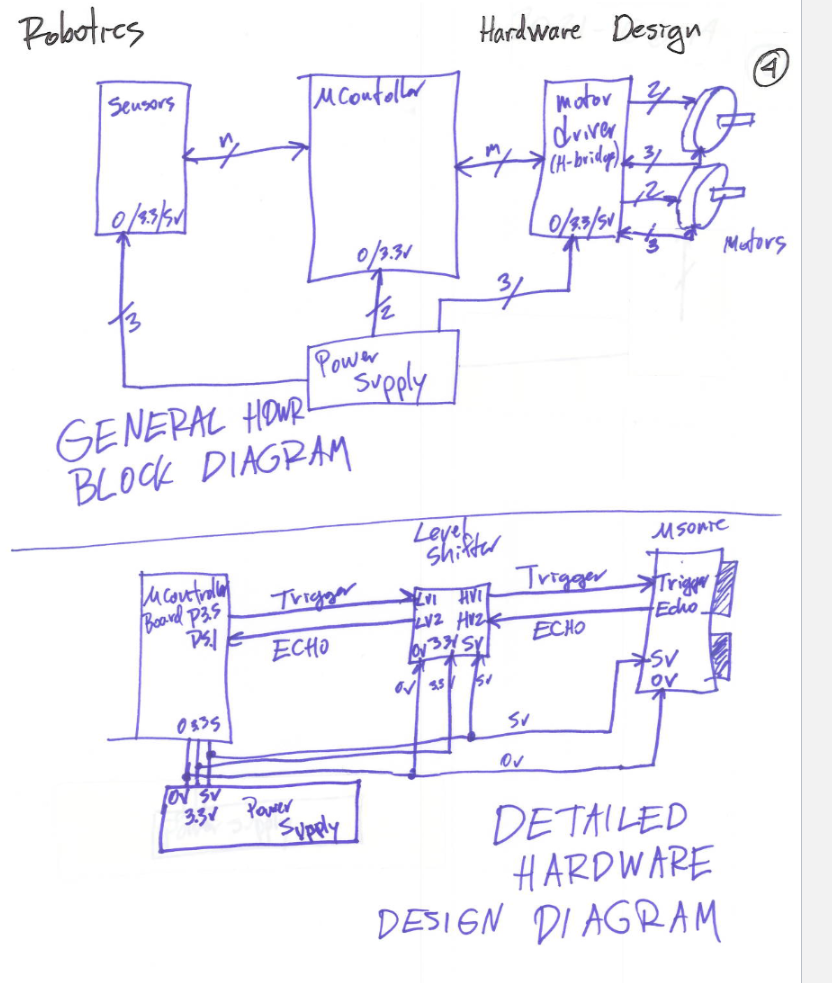 Robotics
Hardware Design
4
Sensors
0/3.3/5V
n
MController
0/3.3V
m
motor
driver
(H-bridge)
0/3.3/5V
2
3
2
3
Motors
3
2
3
Power
Supply
GENERAL HDWR
BLOCK DIAGRAM
Level
Shifter
Msonic
MController
Board P3.5
P5.1
0 3.3 5
Trigger
ECHO
LV1 HV1
LV2 HV2
0V 3.3V 5V
0V 3.3V 5V
Trigger
ECHO
Trigger
Echo
5V
0V
5V
0V
0V 5V
3.3V
Power
Supply
DETAILED
HARDWARE
DESIGN DIAGRAM